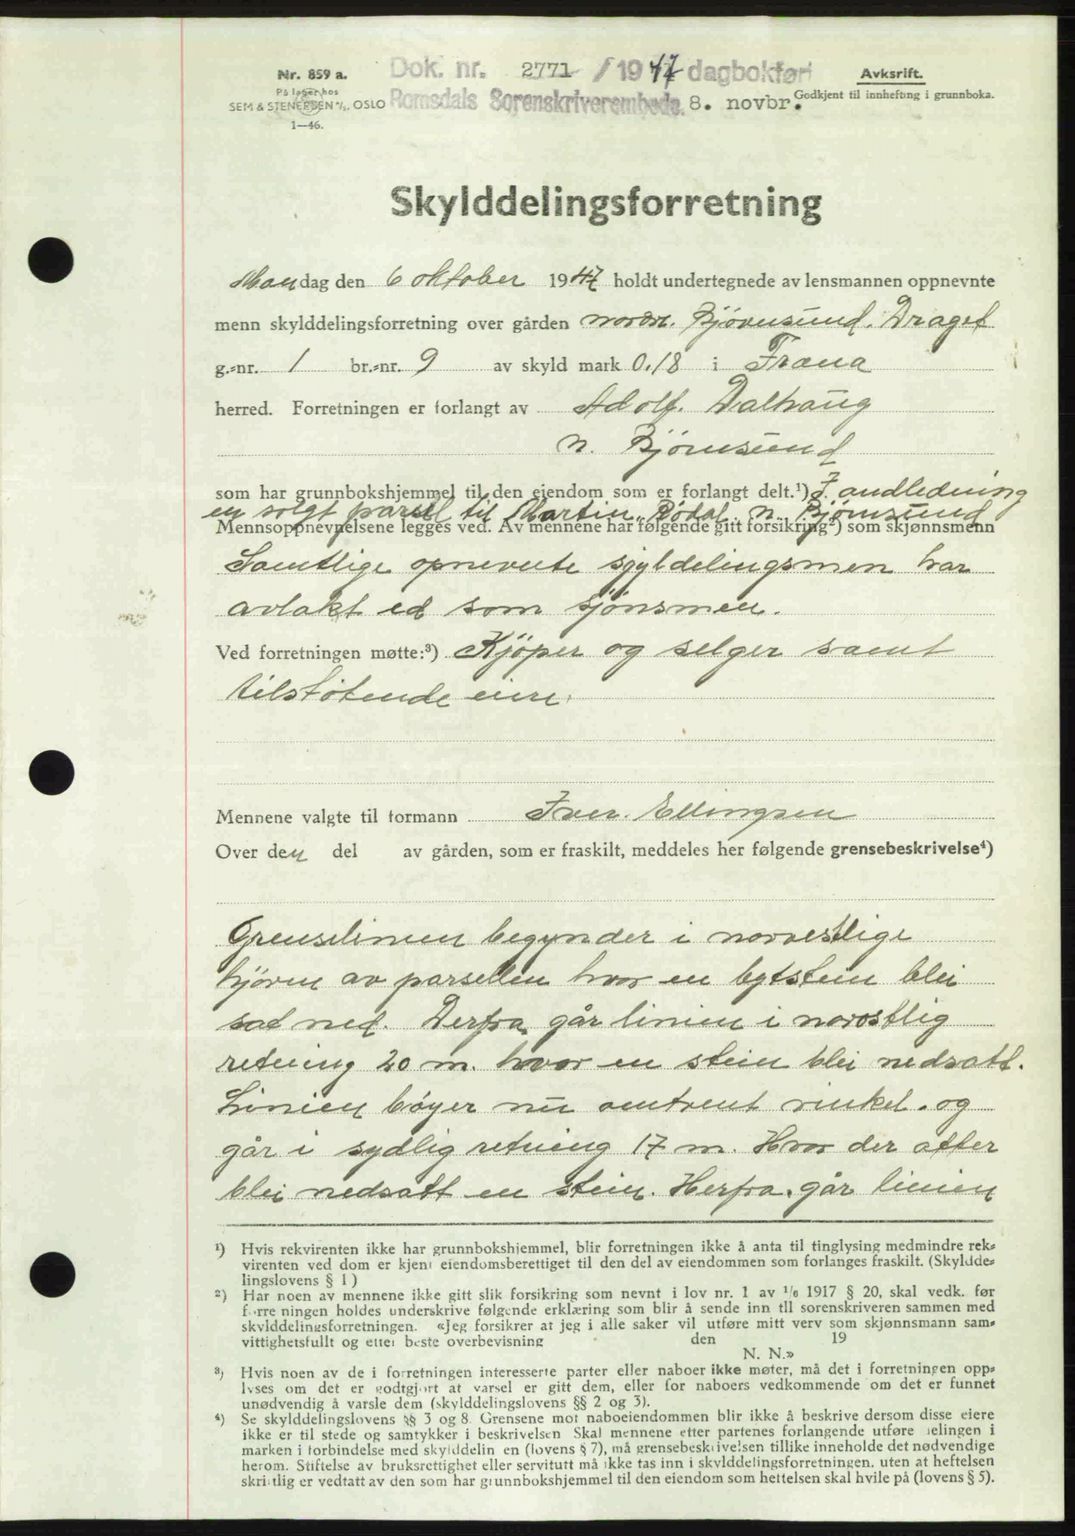 Nr. 859 a.
På lager hos
SEM & STENERSEN A/S, OSLO
1—46.
Dok. nr. 2771 / 1947 dagbokført
Romsdals Sorenskriverembede. 8. novbr.
Avskrift.
Godkjent til innhefting i grunnboka.
Skylddelingsforretning
Mandag den 6 oktober 1947 holdt undertegnede av lensmannen oppnevnte
menn skylddelingsforretning over gården nordre. Bjørnsund. Draget
g.-nr. 1 br.-nr. 9 av skyld mark 0.18 i Fræna
herred. Forretningen er forlangt av Adolf. Dalhaug
N. Bjørnsund
som har grunnbokshjemmel til den eiendom som er forlangt delt.¹) I andledning
en solgt parsel til Martin Rødal n. Bjørnsund
Mennsoppnevnelsene legges ved. Av mennene har følgende gitt forsikring²) som skjønnsmenn
Samtlige opnevnte sjyldelingsmen har
avlakt ed som sjønsmen.
Ved forretningen møtte:³) Kjøper og selger samt
tilstøtende eiere.
Mennene valgte til formann Iver. Ellingsen
Over den del av gården, som er fraskilt, meddeles her følgende grensebeskrivelse⁴)
Grenselinien begynder i norvestlige
hjørne av parsellen hvor en bytstein blei
sat ned. Derfra går linien i norostlig
retning 20 m. hvor en stein blei nedsatt.
Linien bøyer nu omtrent vinkel. og
går i sydlig retning 17 m. Hvor der atter
blei nedsatt en stein. Herfra. går linien
¹) Hvis rekvirenten ikke har grunnbokshjemmel, blir forretningen ikke å anta til tinglysing medmindre rek-
virenten ved dom er kjent eiendomsberettiget til den del av eiendommen som forlanges fraskilt. (Skyldde-
lingslovens § 1)
²) Har noen av mennene ikke gitt slik forsikring som nevnt i lov nr. 1 av 1/6 1917 § 20, skal vedk. før
forretningen holdes underskrive følgende erklæring som blir å sende inn til sorenskriveren sammen med
skylddelingsforretningen. «Jeg forsikrer at jeg i alle saker vil utføre mitt verv som skjønnsmann sam-
vittighetsfullt og etter beste overbevisning den 19
N. N.»
³) Hvis noen av de i forretningen interesserte parter eller naboer ikke møter, må det i forretningen opp-
lyses om det er godtgjort at varsel er gitt dem, eller for naboers vedkommende om det er funnet
unødvendig å varsle dem (skylddelingslovens §§ 2 og 3).
⁴) Se skylddelingslovens §§ 3 og 8. Grensene mot naboeiendommen blir ikke å beskrive dersom disse eiere
ikke er til stede og samtykker i beskrivelsen. Skal mennene etter partenes forlangende utføre delingen i
marken i forbindelse med skylddelingen (lovens § 7), må grensebeskrivelsen tillike inneholde det nødvendige
herom. Stiftelse av bruksrettighet eller servitutt må ikke tas inn i skylddelingsforretningen, uten at heftelsen
skriftlig er vedtatt av den som har grunnbokshjemmel til den eiendom som heftelsen skal hvile på (lovens § 5).